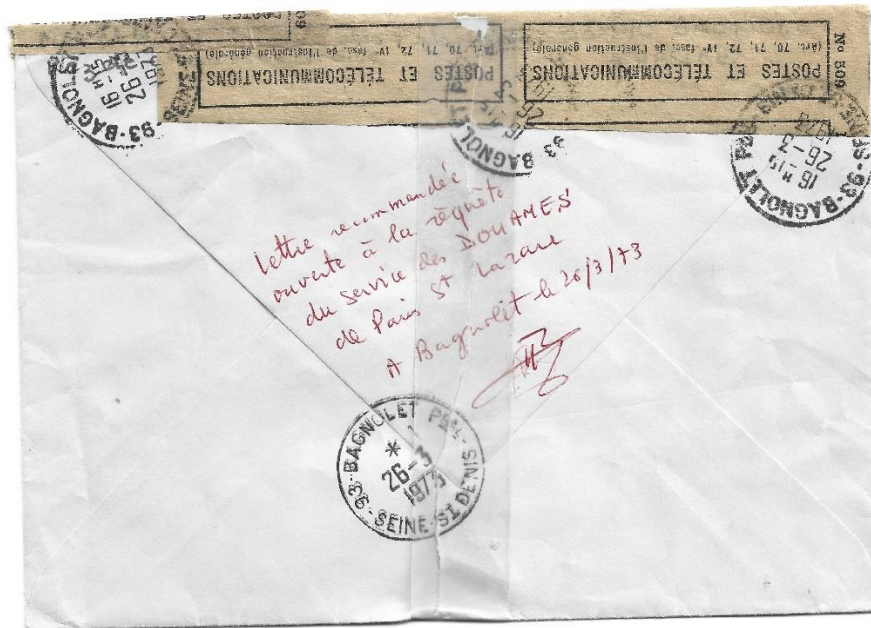 POSTES ET TÉLÉCOMMUNICATIONS
(Art. 70, 71, 72, IVe fasc. de l'Instruction générale)
POSTES ET TÉLÉCOMMUNICATIONS
(Art. 70, 71, 72, IVe fasc. de l'Instruction générale)
No 509
93-BAGNOLET
16 H 15
26-3
1973
93 BAGNOLET
93-BAGNOLET PPAL
16 H 15
26-3
1973
lettre recommandée
ouverte à la requête
du service des DOUANES
de Paris St Lazare
A Bagnolet le 26/3/73
93-BAGNOLET PPAL
*
26-3
1973
SEINE-ST DENIS